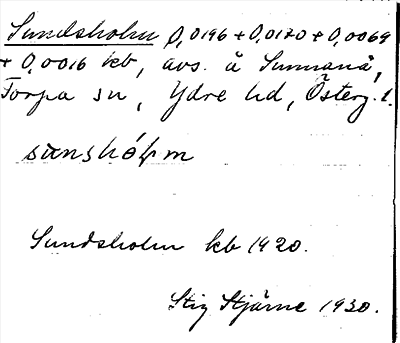 Sundsholm 0,0196 + 0,0170 + 0,0069
+ 0,0016 kb, avs. å Sunnanå,
Torpa sn, Ydre hd, Österg. l.
sunshółm
Sundsholm kb 1920.
Stig Stjärne 1930.